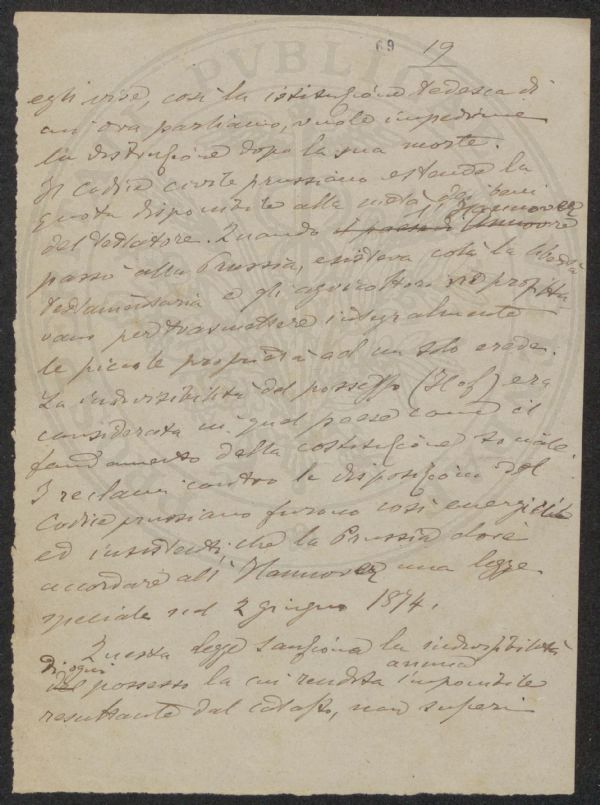 69 19
egli visse, così la istituzione tedesca di
cui ora parliamo, vuole impedirne
la distruzione dopo la sua morte.
Il Codice civile prussiano estende la
quota disponibile alla metà dei beni
del testatore. Quando l'Hannover
passò alla Prussia, esisteva colà la libertà
testamentaria e gli agricoltori ne profitta-
vano per trasmettere integralmente
le piccole proprietà ad un solo erede.
La indivisibilità del possesso (Hof) era
considerata in quel paese come il
fondamento della costituzione sociale.
I reclami contro le disposizioni del
Codice prussiano furono così energici
ed insistenti, che la Prussia dovè
accordare all' Hannover una legge
speciale nel 2 giugno 1874.
Questa legge sanziona la indivisibilità
di ogni possesso la cui rendita annua imponibile
resultante dal catasto, non superi